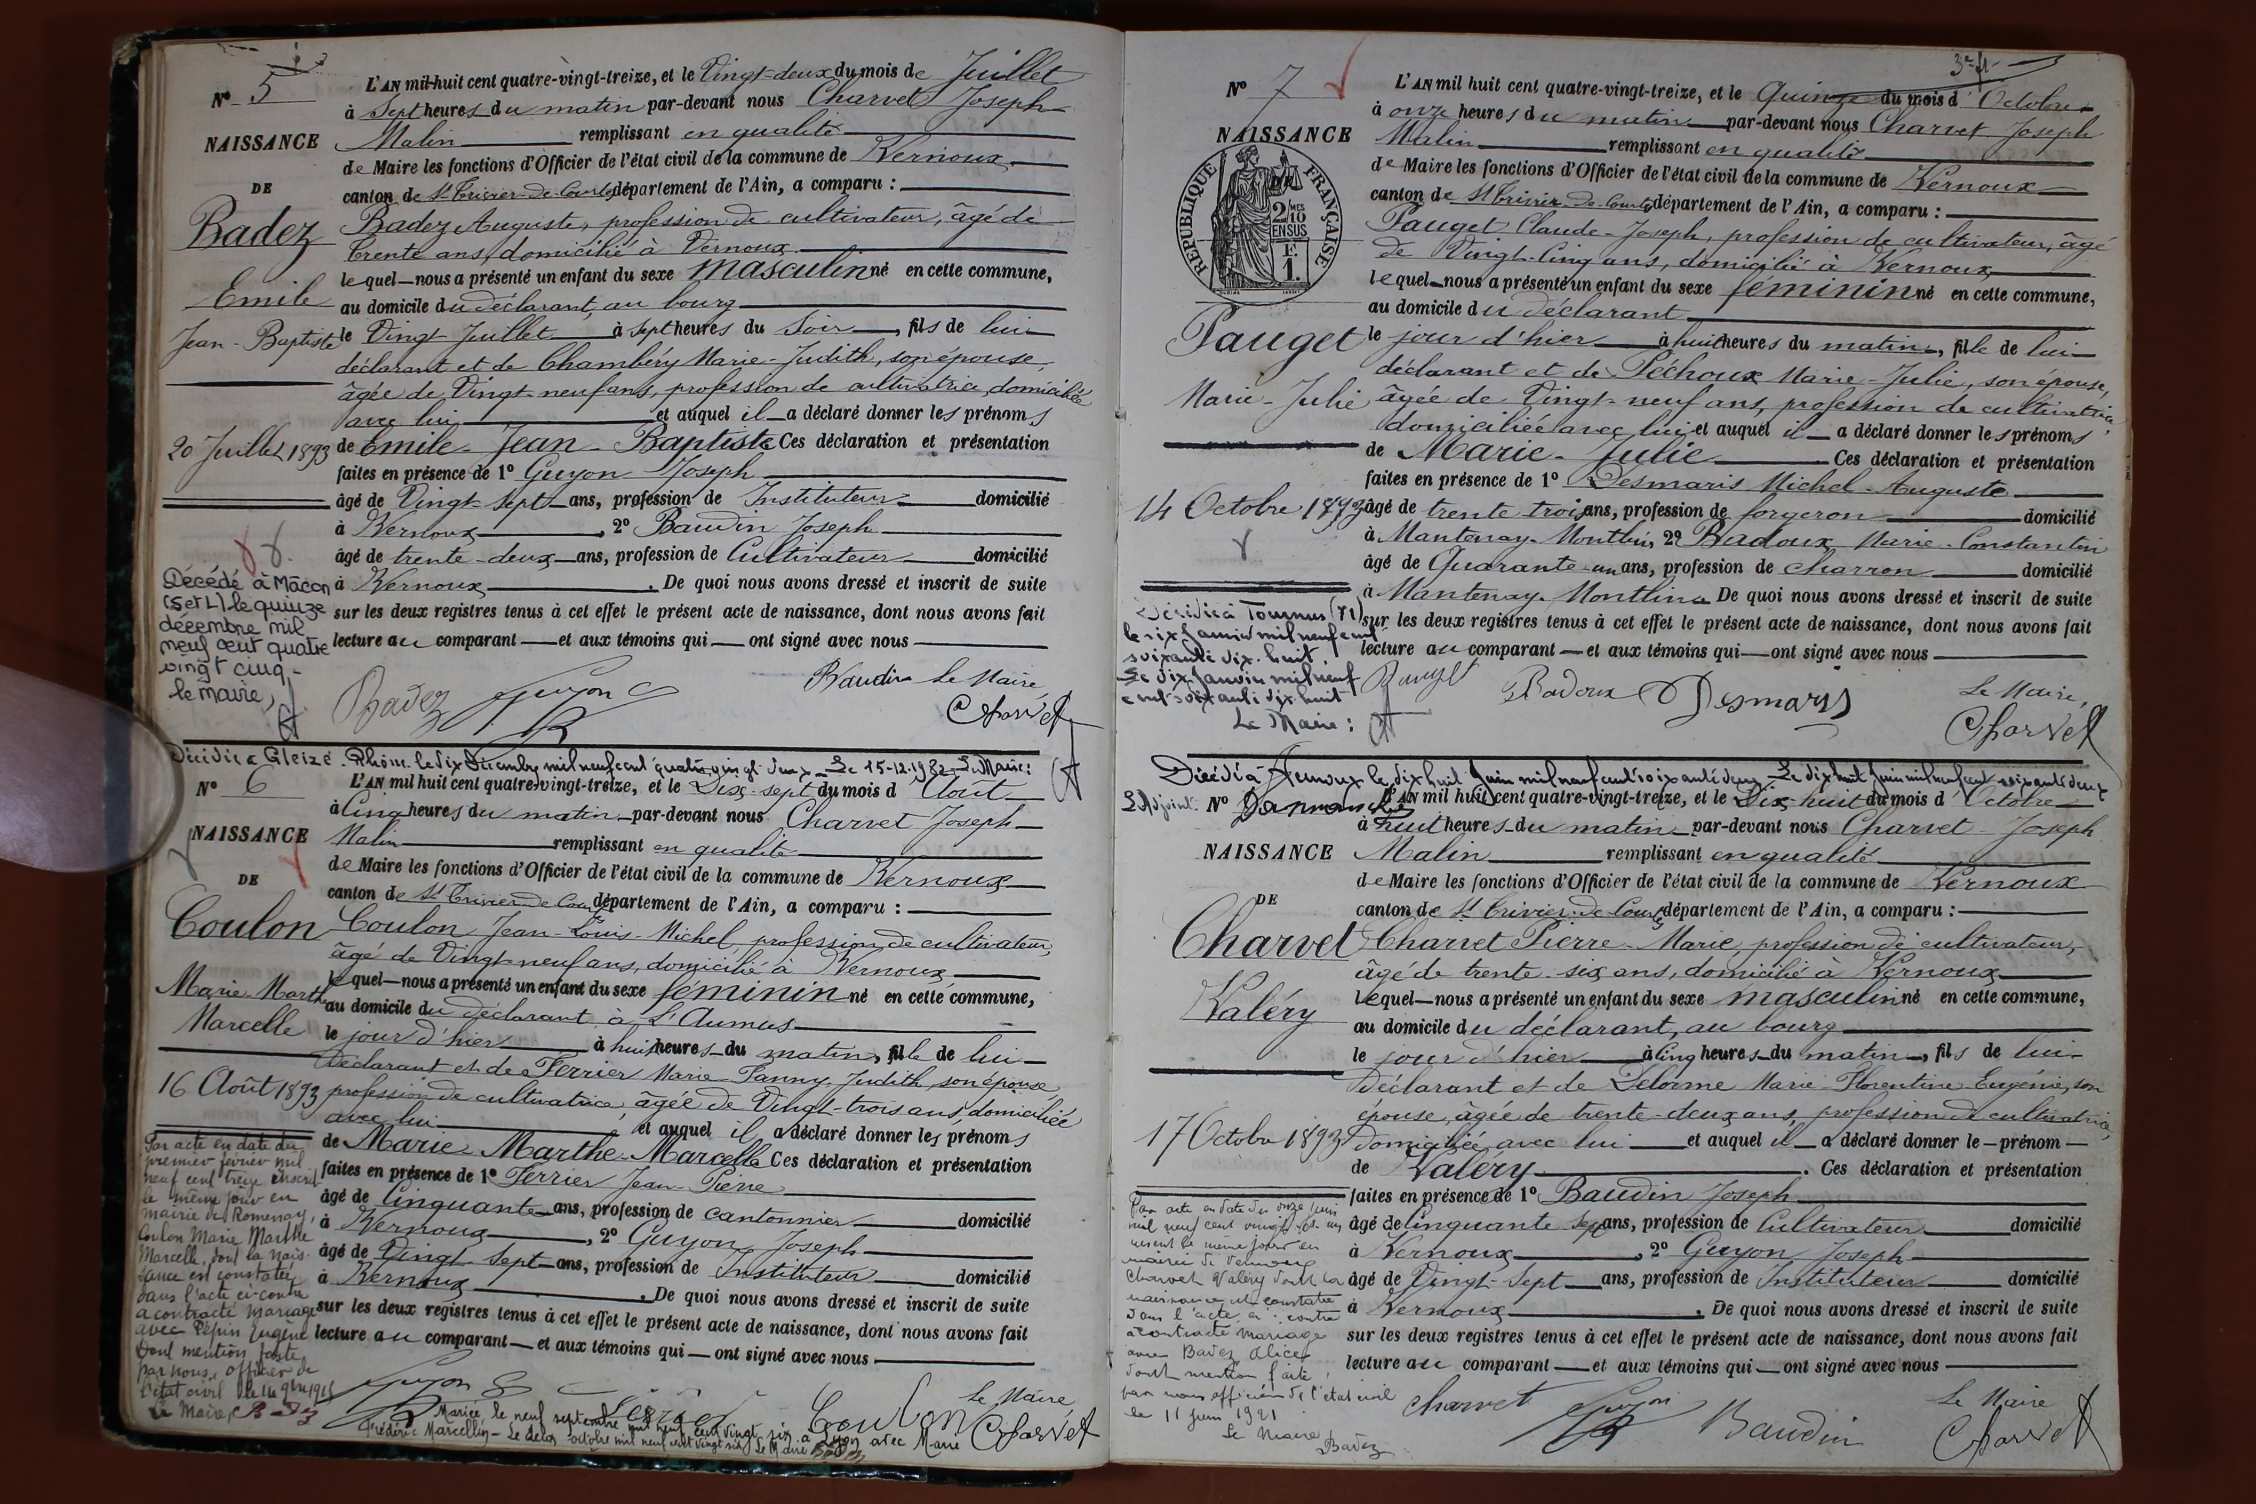 N° 5
NAISSANCE
DE
Badez
Emile
Jean-Baptiste
20 Juillet 1893
Décédé à Mâcon
(S et L) le quinze
décembre mil
neuf cent quatre
vingt cinq.-
le maire,
L'AN mil huit cent quatre-vingt-treize, et le Vingt-deux du mois de Juillet
à Sept heures du matin par-devant nous Charvet Joseph
Malin remplissant en qualité
de Maire les fonctions d'Officier de l'état civil de la commune de Vernoux
canton de St Trivier-de-Courtes département de l'Ain, a comparu :
Badez Auguste, profession de cultivateur, âgé de
trente ans, domicilié à Vernoux
lequel nous a présenté un enfant du sexe masculin né en cette commune,
au domicile du déclarant, au bourg
le Vingt Juillet à sept heures du Soir, fils de lui
déclarant et de Chambéry Marie-Judith, son épouse,
âgée de Vingt-neuf ans, profession de cultivatrice, domiciliée
avec lui et auquel il a déclaré donner les prénoms
de Emile-Jean-Baptiste Ces déclaration et présentation
faites en présence de 1° Guyon Joseph
âgé de Vingt-Sept ans, profession de Instituteur domicilié
à Vernoux, 2° Baudin Joseph
âgé de trente-deux ans, profession de Cultivateur domicilié
à Vernoux. De quoi nous avons dressé et inscrit de suite
sur les deux registres tenus à cet effet le présent acte de naissance, dont nous avons fait
lecture au comparant et aux témoins qui ont signé avec nous
Badez Guyon Baudin Le Maire,
Charvet
Décédée à Gleizé Rhône le dix Décembre mil neuf cent quatre vingt deux - Le 15-12-1982 - Le Maire :
N° 6
NAISSANCE
DE
Coulon
Marie-Marthe
Marcelle
16 Août 1893
Par acte en date du
premier février mil
neuf cent treize inscrit
le même jour en
mairie de Romenay,
Coulon Marie Marthe
Marcelle, dont la nais-
sance est constatée
dans l'acte ci-contre
a contracté mariage
avec Pépin Eugène
Dont mention faite
par nous, officier de
l'état civil
Le Maire,
L'AN mil huit cent quatre-vingt-treize, et le Dix-sept du mois d'Août
à Cinq heures du matin par-devant nous Charvet Joseph
Malin remplissant en qualité
de Maire les fonctions d'Officier de l'état civil de la commune de Vernoux
canton de St Trivier-de-Courtes département de l'Ain, a comparu :
Coulon Jean-Louis-Michel, profession de cultivateur,
âgé de Vingt-neuf ans, domicilié à Vernoux
lequel nous a présenté un enfant du sexe féminin né en cette commune,
au domicile du déclarant, à L'Aumus
le jour d'hier à huit heures du matin, fille de lui
déclarant et de Ferrier Marie-Fanny-Judith, son épouse,
profession de cultivatrice, âgée de Vingt-trois ans, domiciliée
avec lui et auquel il a déclaré donner les prénoms
de Marie-Marthe-Marcelle Ces déclaration et présentation
faites en présence de 1° Ferrier Jean-Pierre
âgé de Cinquante ans, profession de cantonnier domicilié
à Vernoux, 2° Guyon Joseph
âgé de Vingt-sept ans, profession de Instituteur domicilié
à Vernoux. De quoi nous avons dressé et inscrit de suite
sur les deux registres tenus à cet effet le présent acte de naissance, dont nous avons fait
lecture au comparant et aux témoins qui ont signé avec nous
Guyon Ferrier Coulon Le Maire
Charvet
Mariée le neuf septembre mil neuf cent vingt six à Lyon avec Marre
Frédéric Marcellin - Le deux octobre mil neuf cent vingt six Le Maire
3e ft
N° 7
NAISSANCE
DE
RÉPUBLIQUE FRANÇAISE
2/10MES
EN SUS
F.
1.
Pauget
Marie-Julie
14 Octobre 1893
Décédée à Tournus (71)
le six Janvier mil neuf cent
soixante dix-huit.
Le dix Janvier mil neuf
cent soixante dix huit
Le Maire :
L'AN mil huit cent quatre-vingt-treize, et le Quinze du mois d'Octobre
à onze heures du matin par-devant nous Charvet Joseph
Malin remplissant en qualité
de Maire les fonctions d'Officier de l'état civil de la commune de Vernoux
canton de St Trivier-de-Courtes département de l'Ain, a comparu :
Pauget Claude-Joseph, profession de cultivateur, âgé
de Vingt-cinq ans, domicilié à Vernoux
lequel nous a présenté un enfant du sexe féminin né en cette commune,
au domicile du déclarant
le jour d'hier à huit heures du matin, fille de lui
déclarant et de Péchoux Marie-Julie, son épouse,
âgée de Vingt-neuf ans, profession de cultivatrice,
domiciliée avec lui et auquel il a déclaré donner les prénoms
de Marie-Julie Ces déclaration et présentation
faites en présence de 1° Desmaris Michel-Auguste
âgé de trente trois ans, profession de forgeron domicilié
à Mantenay-Montlin, 2° Badoux Marie-Constantin
âgé de Quarante-un ans, profession de charron domicilié
à Mantenay-Montlin. De quoi nous avons dressé et inscrit de suite
sur les deux registres tenus à cet effet le présent acte de naissance, dont nous avons fait
lecture au comparant et aux témoins qui ont signé avec nous
Pauget Badoux Desmarys Le Maire,
Charvet
Décédé à Vernoux le dix huit Juin mil neuf cent soixante deux - Le dix huit Juin mil neuf cent soixante deux
L'Adjoint :
N°
NAISSANCE
DE
Charvet
Valéry
17 Octobre 1893
Par acte en date du onze juin
mil neuf cent vingt et un
inscrit le même jour en
mairie de Vernoux
Charvet Valéry dont la
naissance est constatée
dans l'acte ci-contre
a contracté mariage
avec Badez Alice
dont mention faite
par nous officier de l'état civil
le 11 juin 1921
Le Maire
Badez
L'AN mil huit cent quatre-vingt-treize, et le Dix-huit du mois d'Octobre
à huit heures du matin par-devant nous Charvet Joseph
Malin remplissant en qualité
de Maire les fonctions d'Officier de l'état civil de la commune de Vernoux
canton de St Trivier-de-Courtes département de l'Ain, a comparu :
Charvet Pierre-Marie, profession de cultivateur,
âgé de trente-six ans, domicilié à Vernoux
lequel nous a présenté un enfant du sexe masculin né en cette commune,
au domicile du déclarant, au bourg
le jour d'hier à Cinq heures du matin, fils de lui
déclarant et de Delorme Marie-Florentine-Eugénie, son
épouse, âgée de trente-deux ans, profession de cultivatrice,
domiciliée avec lui et auquel il a déclaré donner le prénom
de Valéry. Ces déclaration et présentation
faites en présence de 1° Baudin Joseph
âgé de Cinquante sept ans, profession de Cultivateur domicilié
à Vernoux, 2° Guyon Joseph
âgé de Vingt-Sept ans, profession de Instituteur domicilié
à Vernoux. De quoi nous avons dressé et inscrit de suite
sur les deux registres tenus à cet effet le présent acte de naissance, dont nous avons fait
lecture au comparant et aux témoins qui ont signé avec nous
Charvet Guyon Baudin Le Maire
Charvet